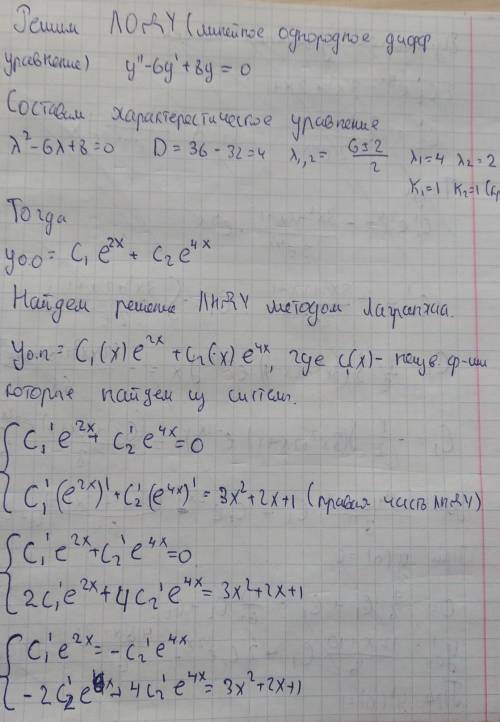 Решим ЛОДУ (линейное однородное дифф
уравнение) y'' - 6y' + 8y = 0
Составим характеристическое уравнение
λ² - 6λ + 8 = 0 D = 36 - 32 = 4 λ₁,₂ = (6 ± 2)/2 λ₁ = 4 λ₂ = 2
K₁ = 1 K₂ = 1 (кр
Тогда
yo.o = C₁ e^2x + C₂ e^4x
Найдем решение ЛНДУ методом Лагранжа.
yo.n = C₁(x) e^2x + C₂(x) e^4x, где Cᵢ(x) - неизв. ф-ии
которые найдем из систем.
{ C₁' e^2x + C₂' e^4x = 0
{ C₁' (e^2x)' + C₂' (e^4x)' = 3x² + 2x + 1 (правая часть ЛНДУ)
{ C₁' e^2x + C₂' e^4x = 0
{ 2C₁' e^2x + 4C₂' e^4x = 3x² + 2x + 1
{ C₁' e^2x = -C₂' e^4x
{ -2C₂' e^4x + 4C₂' e^4x = 3x² + 2x + 1